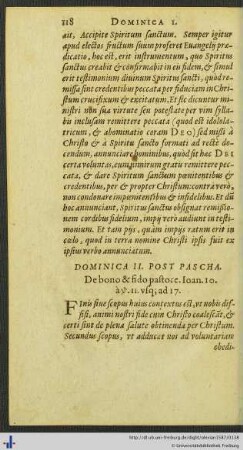 118 DOMINICA I.
ait, Accipite Spiritum sanctum. Semper igitur
apud electos fructum suum proferet Euangelij præ-
dicatio, hoc est, erit instrumentum, quo Spiritus
sanctus creabit & confirmabit in eis fidem, & simul
erit testimonium diuinum Spiritus sancti, quòd re-
missa sint credentibus peccata per fiduciam in Chri-
stum crucifixum & excitatum. Et sic dicuntur mi-
nistri non sua virtute (un putestate per vim sylla-
bis inclusam remittere peccata, (quod est idolola-
tricum, & abominatio coram DEO) sed missi à
Christo & à Spiritu sancto formati ad rectè do-
cendum, annunciare hominibus, quòd sit hæc DEI
certa voluntas, cum nimirum gratis remittere pecca-
ta, & dare Spiritum sanctum pœnitentibus &
credentibus, per & propter Christum: contrà verò,
non condonare impœnitentibus & infidelibus. Et dū
hoc annunciant, Spiritus sanctus obsignat remissio-
nem cordibus fidelium, impij verò audiunt in testimo-
nium. Et tam pijs, quàm impijs ratum erit in
cælo, quod in terra nomine Christi ipsis fuit ex
ipsius verbo annunciatum.
DOMINICA II. POST PASCHA.
De bono & fido pastore. Ioan. 10.
à ℣. 11. vsq; ad 17.
Finis siue scopus huius contextus est, vt nobis dif-
fisi, animi nostri fide cum Christo coalescāt, &
certi sint de plena salute obtinenda per Christum.
Secundus scopus, vt adducat nos ad voluntariam
obedi-
http://dl.ub.uni-freiburg.de/diglit/
© Universitätsbibliothek Freiburg